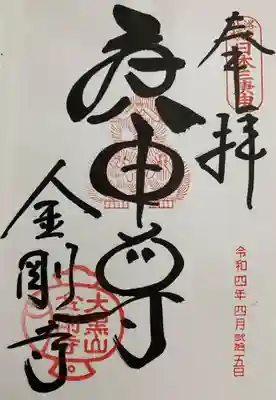 奉拝
日本三庚申
庚申尊
金剛寺
大黒山
金剛寺
令和四年四月弐拾五日